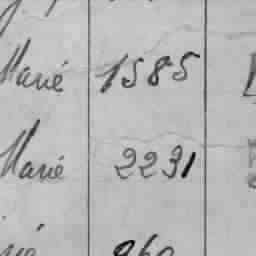 Marié 1585
Marié 2231